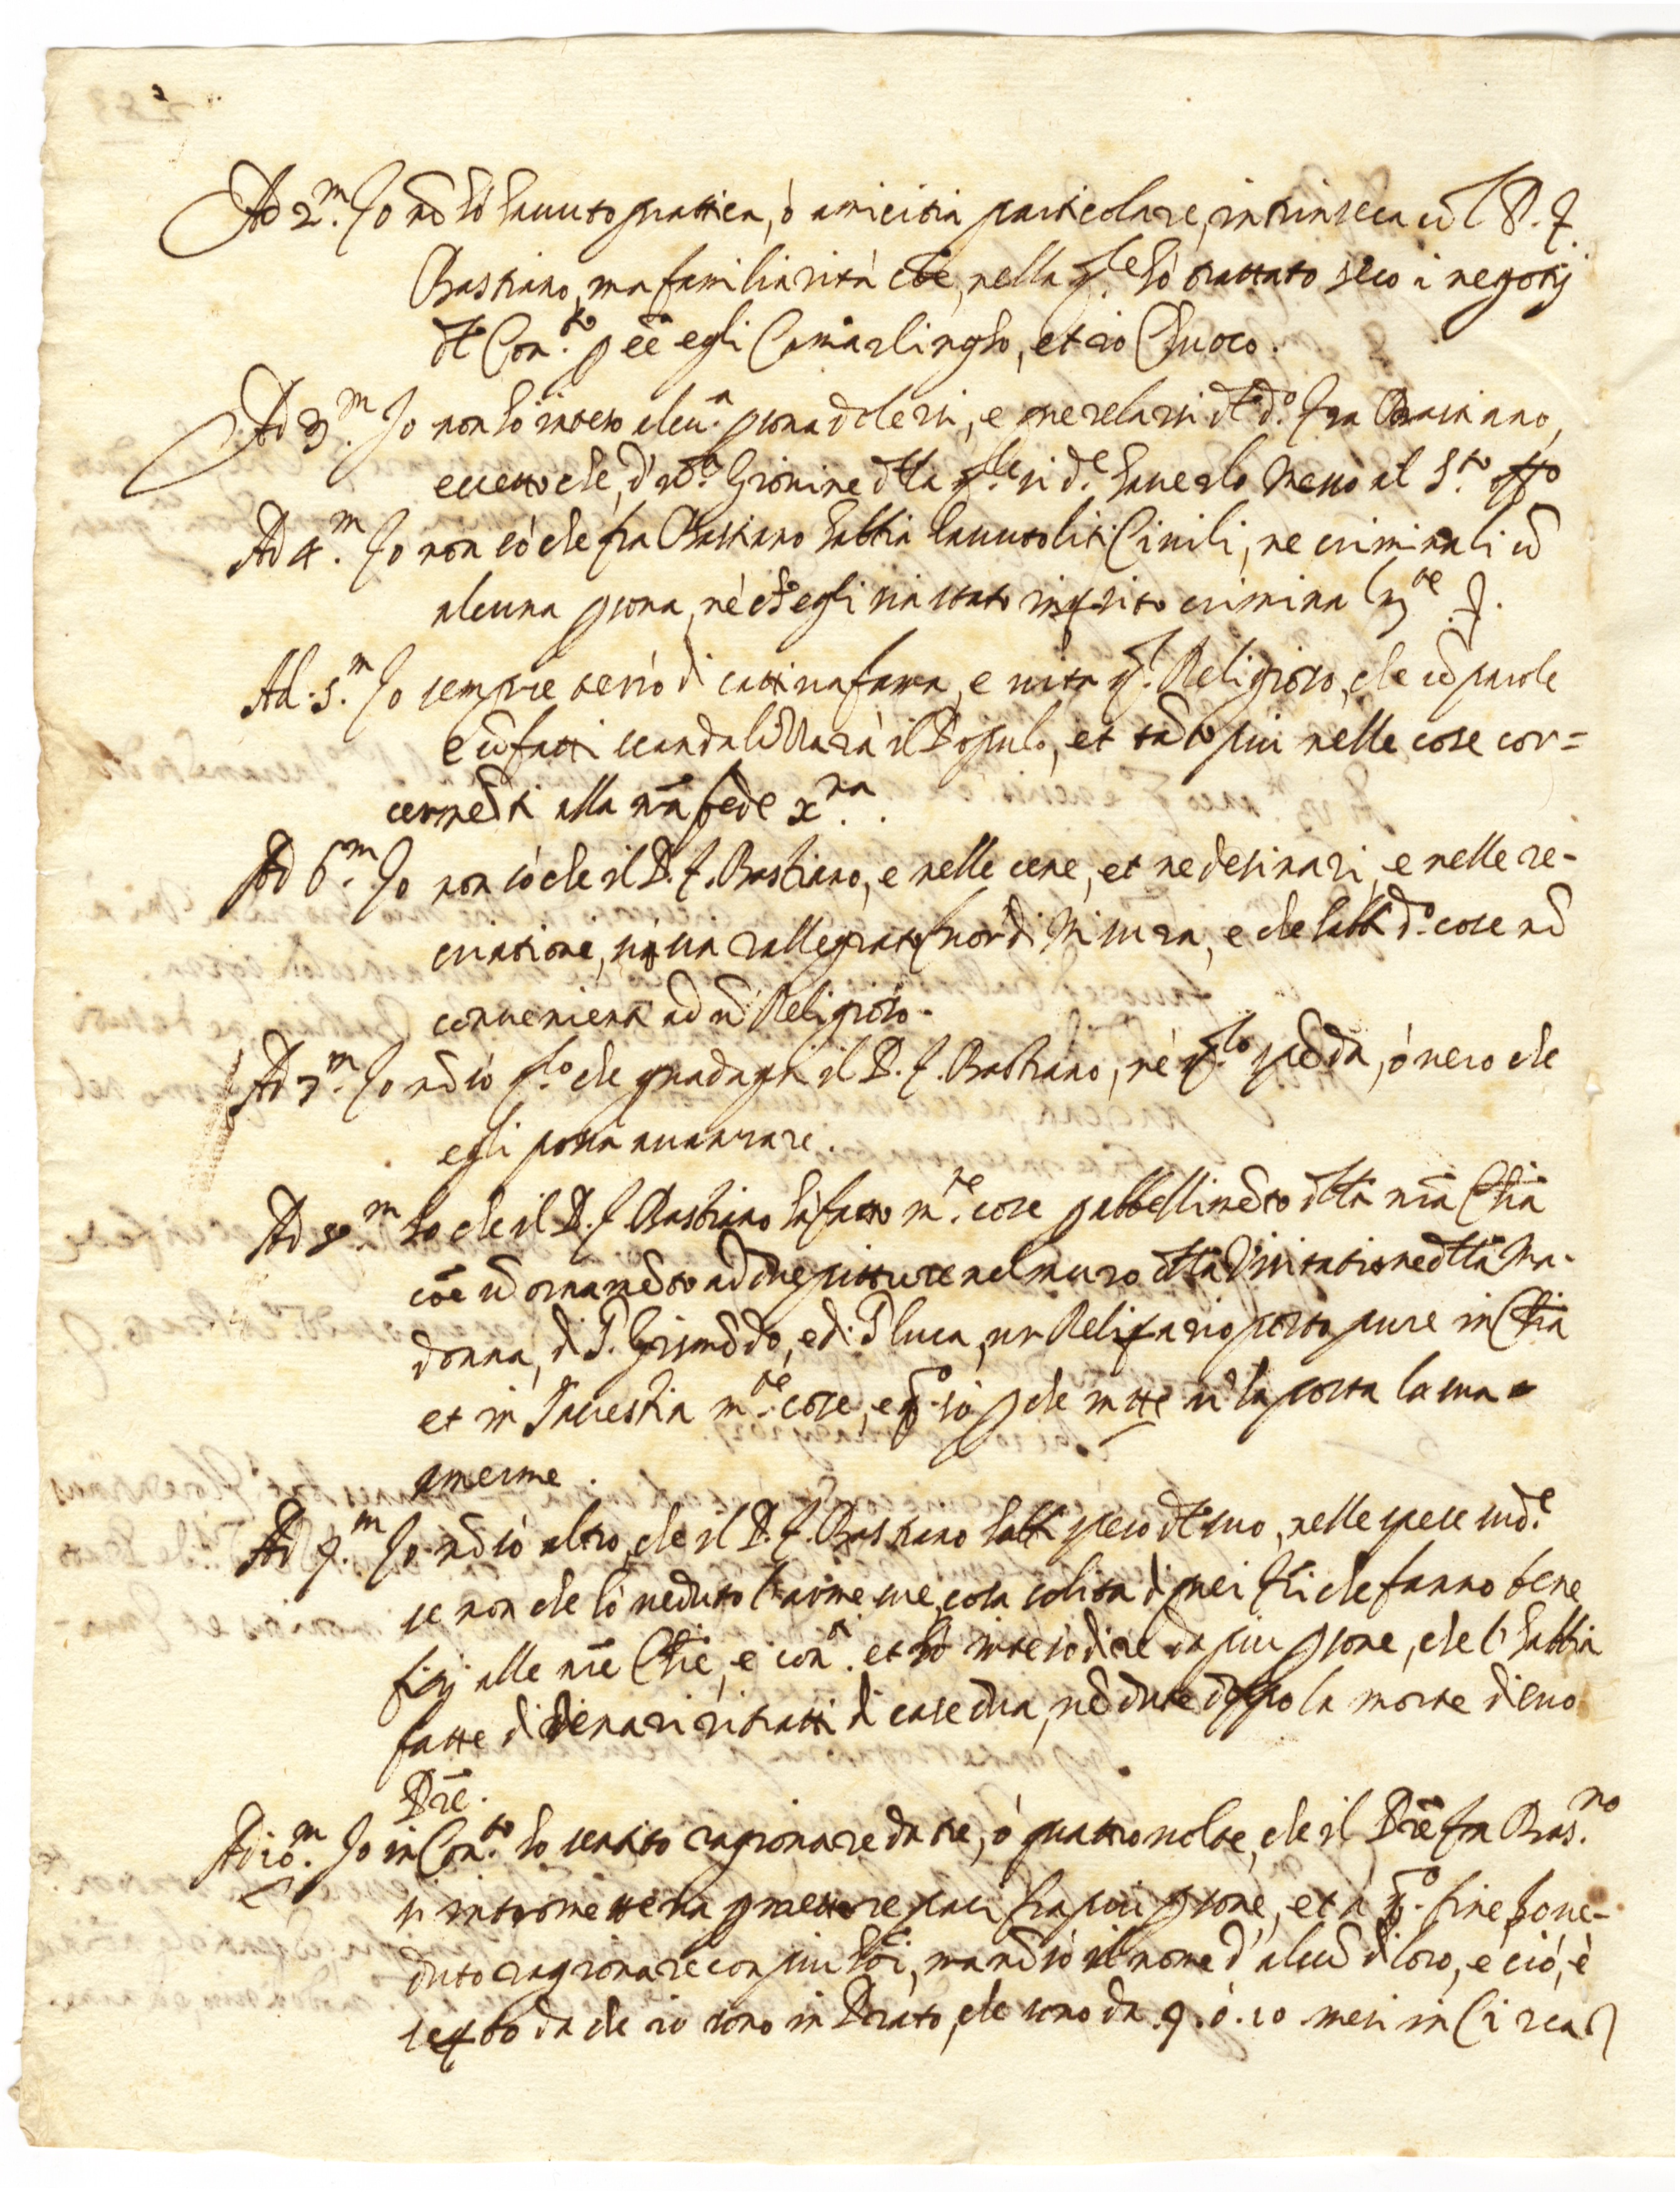 Ad 2.m Io nō hò hauuto prattica, ò amicitia particolare, intrinseca cō l P. f.
Bastiano, ma familiarità chē, nella q.le hò trattato seco i negotij
del Con.to p eē egli Camarlingho, et io Cuoco.
Ad 3.m Io non hò inteso alcu.a psona dolersi, e querelarsi del d.o fra Bastiano,
eccetto che, d' m.a la qle si d.e hauerlo messo al S.to offo
Ad 4.m Io non sò che fra Bastiano habbia hauuto liti Ciuili, ne criminali cō
alcuna psona, nè ch' egli sia stato inqsito criminalm.te
Ad. 5.m Io sempre terrò di cattiua fama, e uita q.l Religioso, che cō parole
e cō fatti scandalizzarà il Popolo, et tāto piu nelle cose con=
cernēti alla nrā fede x.na.
Ad 6.m Io non sò che il P. f. Bastiano, e nelle cene, et ne desinari, e nelle re-
criatione, si sia rallegrato fuor di misura, e che habb d.o cose nō
conuenienti ad ū Religioso.
Ad 7.m Io nō sò q.to che guadagni il P. f. Bastiano, nè q.to spēda, ò uero che
egli possa auanzare.
Ad 8.m So che il P. f. Bastiano hà fatto m.te cose p abbellimēto della nrā Chīa
coē ū ornamēto ad due pitture nel muro della Visitatione della Ma-
donna, di S. Gismōdo, e di S Luca, un Reliqario posto pure in Chīa
et in Sacrestia m.te cose, e q.o sò p che in tte u' hà posta la sua
arme.
Ad 9.m Io nō sò altro, che il P. f. Bastiano habb speso del suo, nelle spese sud.e
se non che hò ueduto l'arme sue, cosa solita di quei frī che fanno bene
fizij alle nrē Chiē, e con.ti et hò inteso dire da piu psone, che l' habbia
fatte di denari ritratti di case sua, uēdute doppo la morte di suo
Prē.
Ad io.m Io in Con.to hò sentito ragionare da tre, ò quattro uolte, che il Prē fra Bas.no
si intrometteua p mettere paci fra piu psone, et a q.o fine hò ue-
duto ragionare con piu hoī, ma nō sò il nome d' alcū di loro, e ciò, è
seqto da che io sono in Prato, che sono da .9. ò .10. mesi in Circa